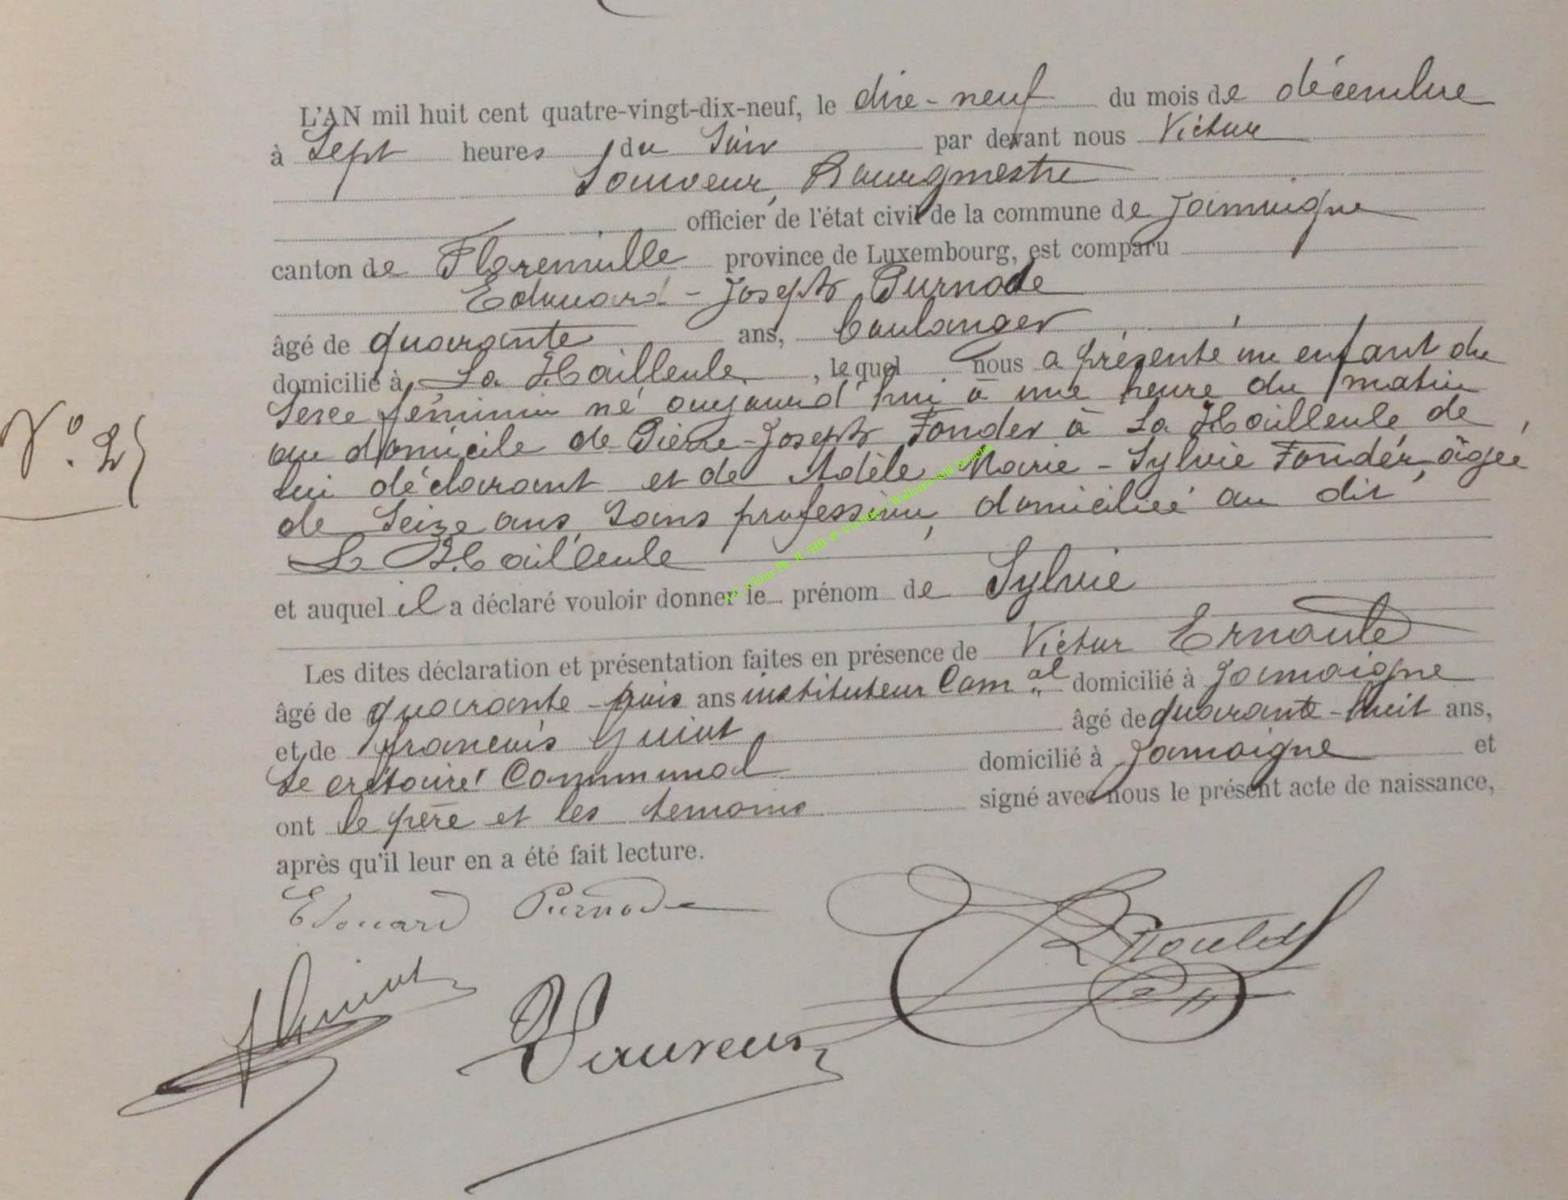 L'AN mil huit cent quatre-vingt-dix-neuf, le dixe-neuf du mois de décembre
à Sept heures du Soir par devant nous Victor
Sauveur, Bourgmestre
officier de l'état civil de la commune de Jamoigne
canton de Florenville province de Luxembourg, est comparu
Edouard-Joseph Purnode
âgé de quarante ans, boulanger
domicilié à La Hailleule, lequel nous a présenté un enfant du
Sexe féminin né aujourd'hui à une heure du matin
au domicile de Pierre-Joseph Fonder à La Hailleule de
lui déclarant et de Adèle Marie-Sylvie Fondér, âgée
de Seize ans, Sans profession, domiciliée au dit
La Hailleule
et auquel il a déclaré vouloir donner le prénom de Sylvie
Les dites déclaration et présentation faites en présence de Victor
N° 25
âgé de quarante-trois ans instituteur Com.al domicilié à Jamoigne
et de françois Guiot âgé de quarante-huit ans,
Secrétaire Communal domicilié à Jamoigne et
ont le père et les temoins signé avec nous le présent acte de naissance,
après qu'il leur en a été fait lecture.
Edouard Purnode
f Guiot
V Sauveur